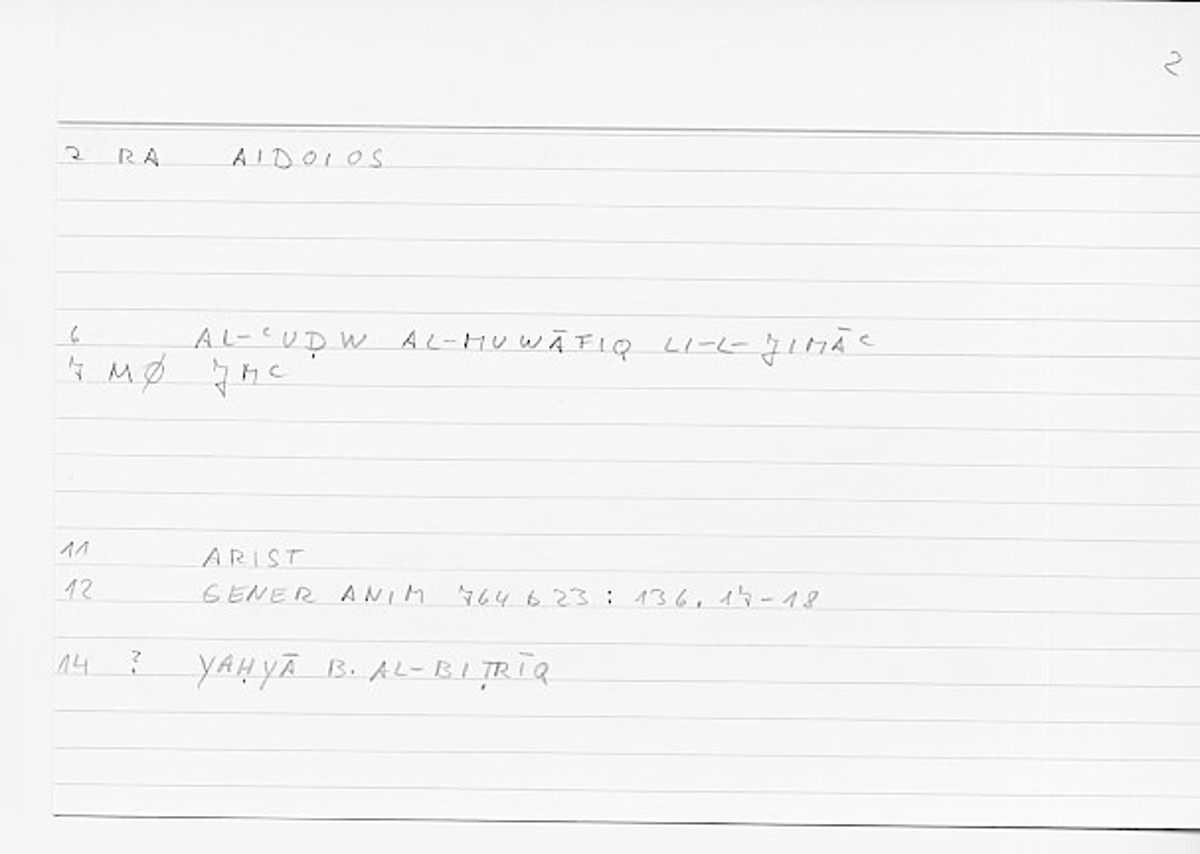 2
2 RA AIDOIOS
6 AL-ʿUḌW AL-MUWĀFIQ LI-L-JIMĀʿ
7 MØ JMʿ
11 ARIST
12 GENER ANIM 764 b 23 : 136. 17-18
14 ? YAḤYĀ B. AL-BIṬRĪQ